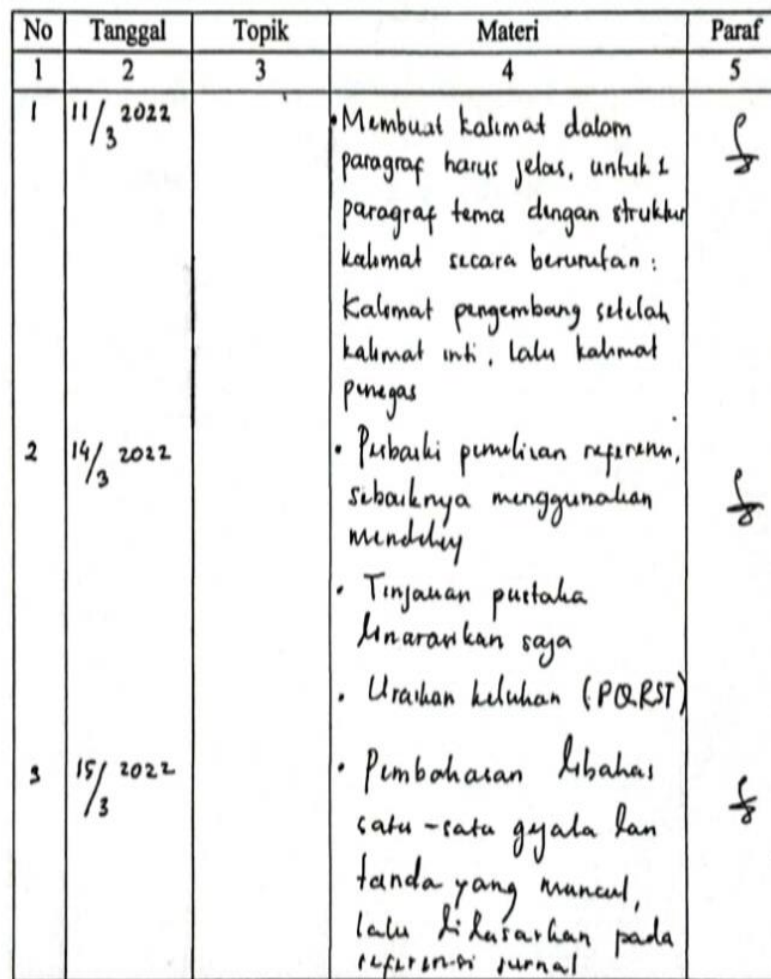 No Tanggal Topik Materi Paraf
1 2 3 4 5
1 11/3 2022 • Membuat kalimat dalam
paragraf harus jelas, untuk 1
paragraf tema dengan struktur
kalimat secara berurutan :
Kalimat pengembang setelah
kalimat inti, lalu kalimat
penegas
2 14/3 2022 • Perbaiki penulisan referensi,
sebaiknya menggunakan
mendeley
• Tinjauan pustaka
dinarasikan saja
• Uraikan keluhan (PQRST)
3 15/3 2022 • Pembahasan dibahas
satu-satu gejala dan
tanda yang muncul,
lalu didasarkan pada
referensi jurnal